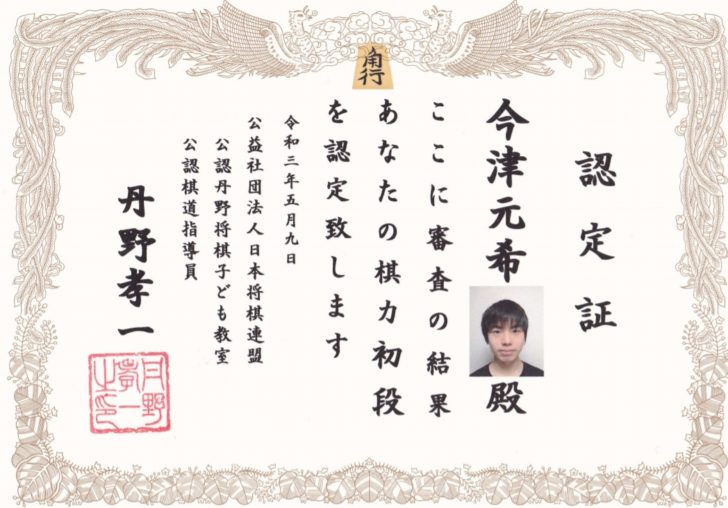 角行
認定証
今津元希殿
ここに審査の結果
あなたの棋力初段
を認定致します
令和三年五月九日
公益社団法人日本将棋連盟
公認丹野将棋子ども教室
公認棋道指導員
丹野孝一
丹野
孝一
之印